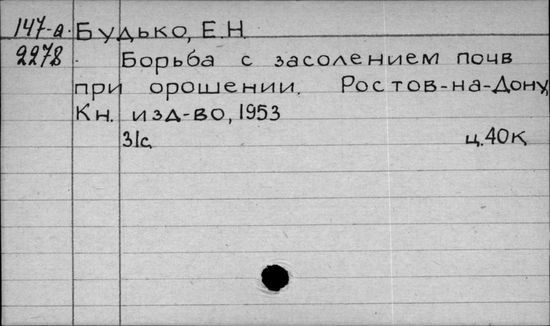 147-а Будько, Е.Н.
2278 Борьба с засолением почв
при орошении. Ростов-на-Дону,
Кн. изд-во, 1953
31с. ц. 40к